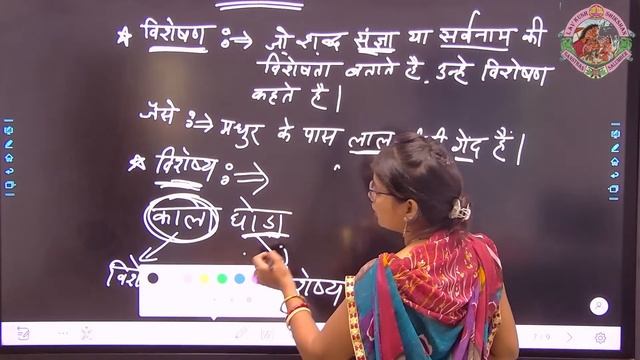 * विशेषण :-> जो शब्द संज्ञा या सर्वनाम की
विशेषता बताते है. उन्हे विशेषण
कहते है।
जैसे :-> मधुर के पास लाल गेंद हैं।
* विशेष्य :->
काला घोडा